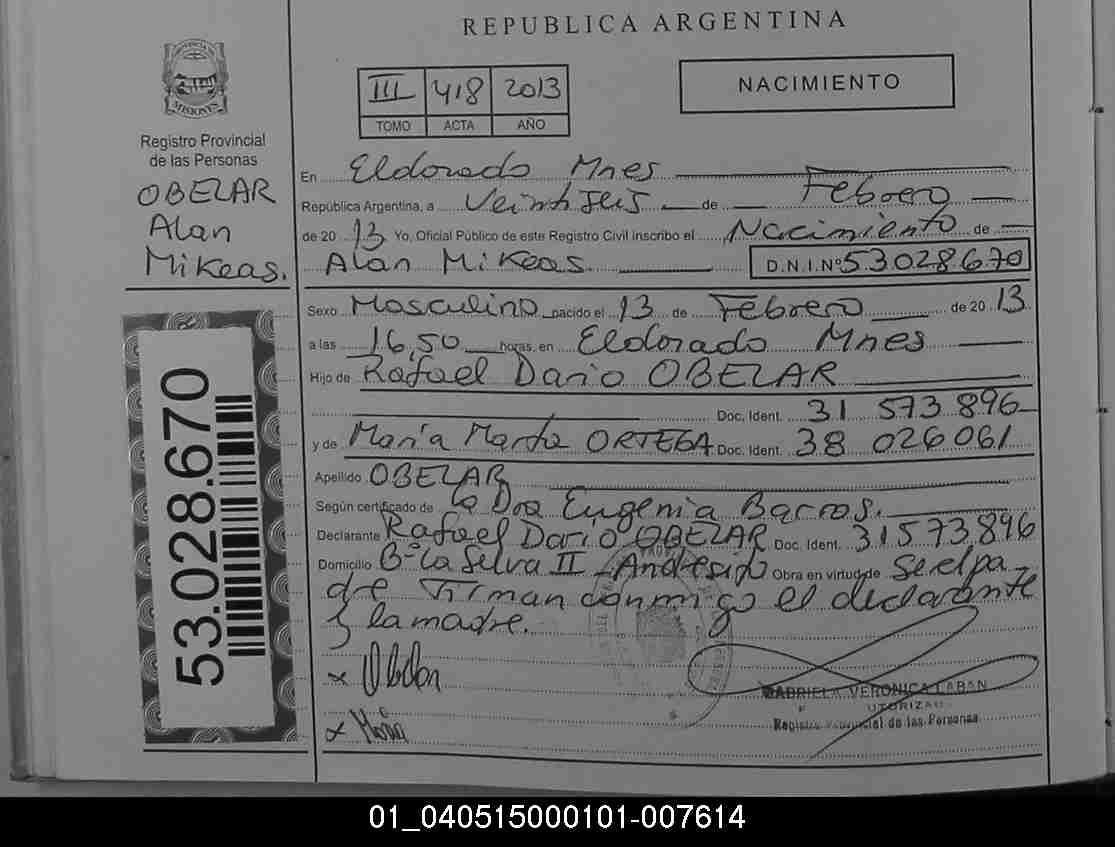 REPUBLICA ARGENTINA
PROVINCIA DE MISIONES
Registro Provincial
de las Personas
OBELAR
Alan
Mikeas.
53.028.670
III 418 2013
TOMO ACTA AÑO
NACIMIENTO
En Eldorado Mnes
República Argentina, a Veintiseis de Febrero
de 20 13 Yo, Oficial Público de este Registro Civil inscribo el Nacimiento de
Alan Mikeas. D.N.I.Nº 53028670
Sexo Masculino nacido el 13 de Febrero de 20 13
a las 16,50 horas, en Eldorado Mnes
Hijo de Rafael Dario OBELAR
Doc. Ident. 31 573 896
y de María Marta ORTEGA Doc. Ident. 38 026 061
Apellido OBELAR
Según certificado de la Dra Eugenia Barros.
Declarante Rafael Dario OBELAR Doc. Ident. 31573896
Domicilio Bº La Selva II - Andresito Obra en virtud de ser el pa
dre Firman conmigo el declarante
y la madre.
x
x María
GABRIELA VERONICA LABAN
Registro Provincial de las Personas
01_040515000101-007614